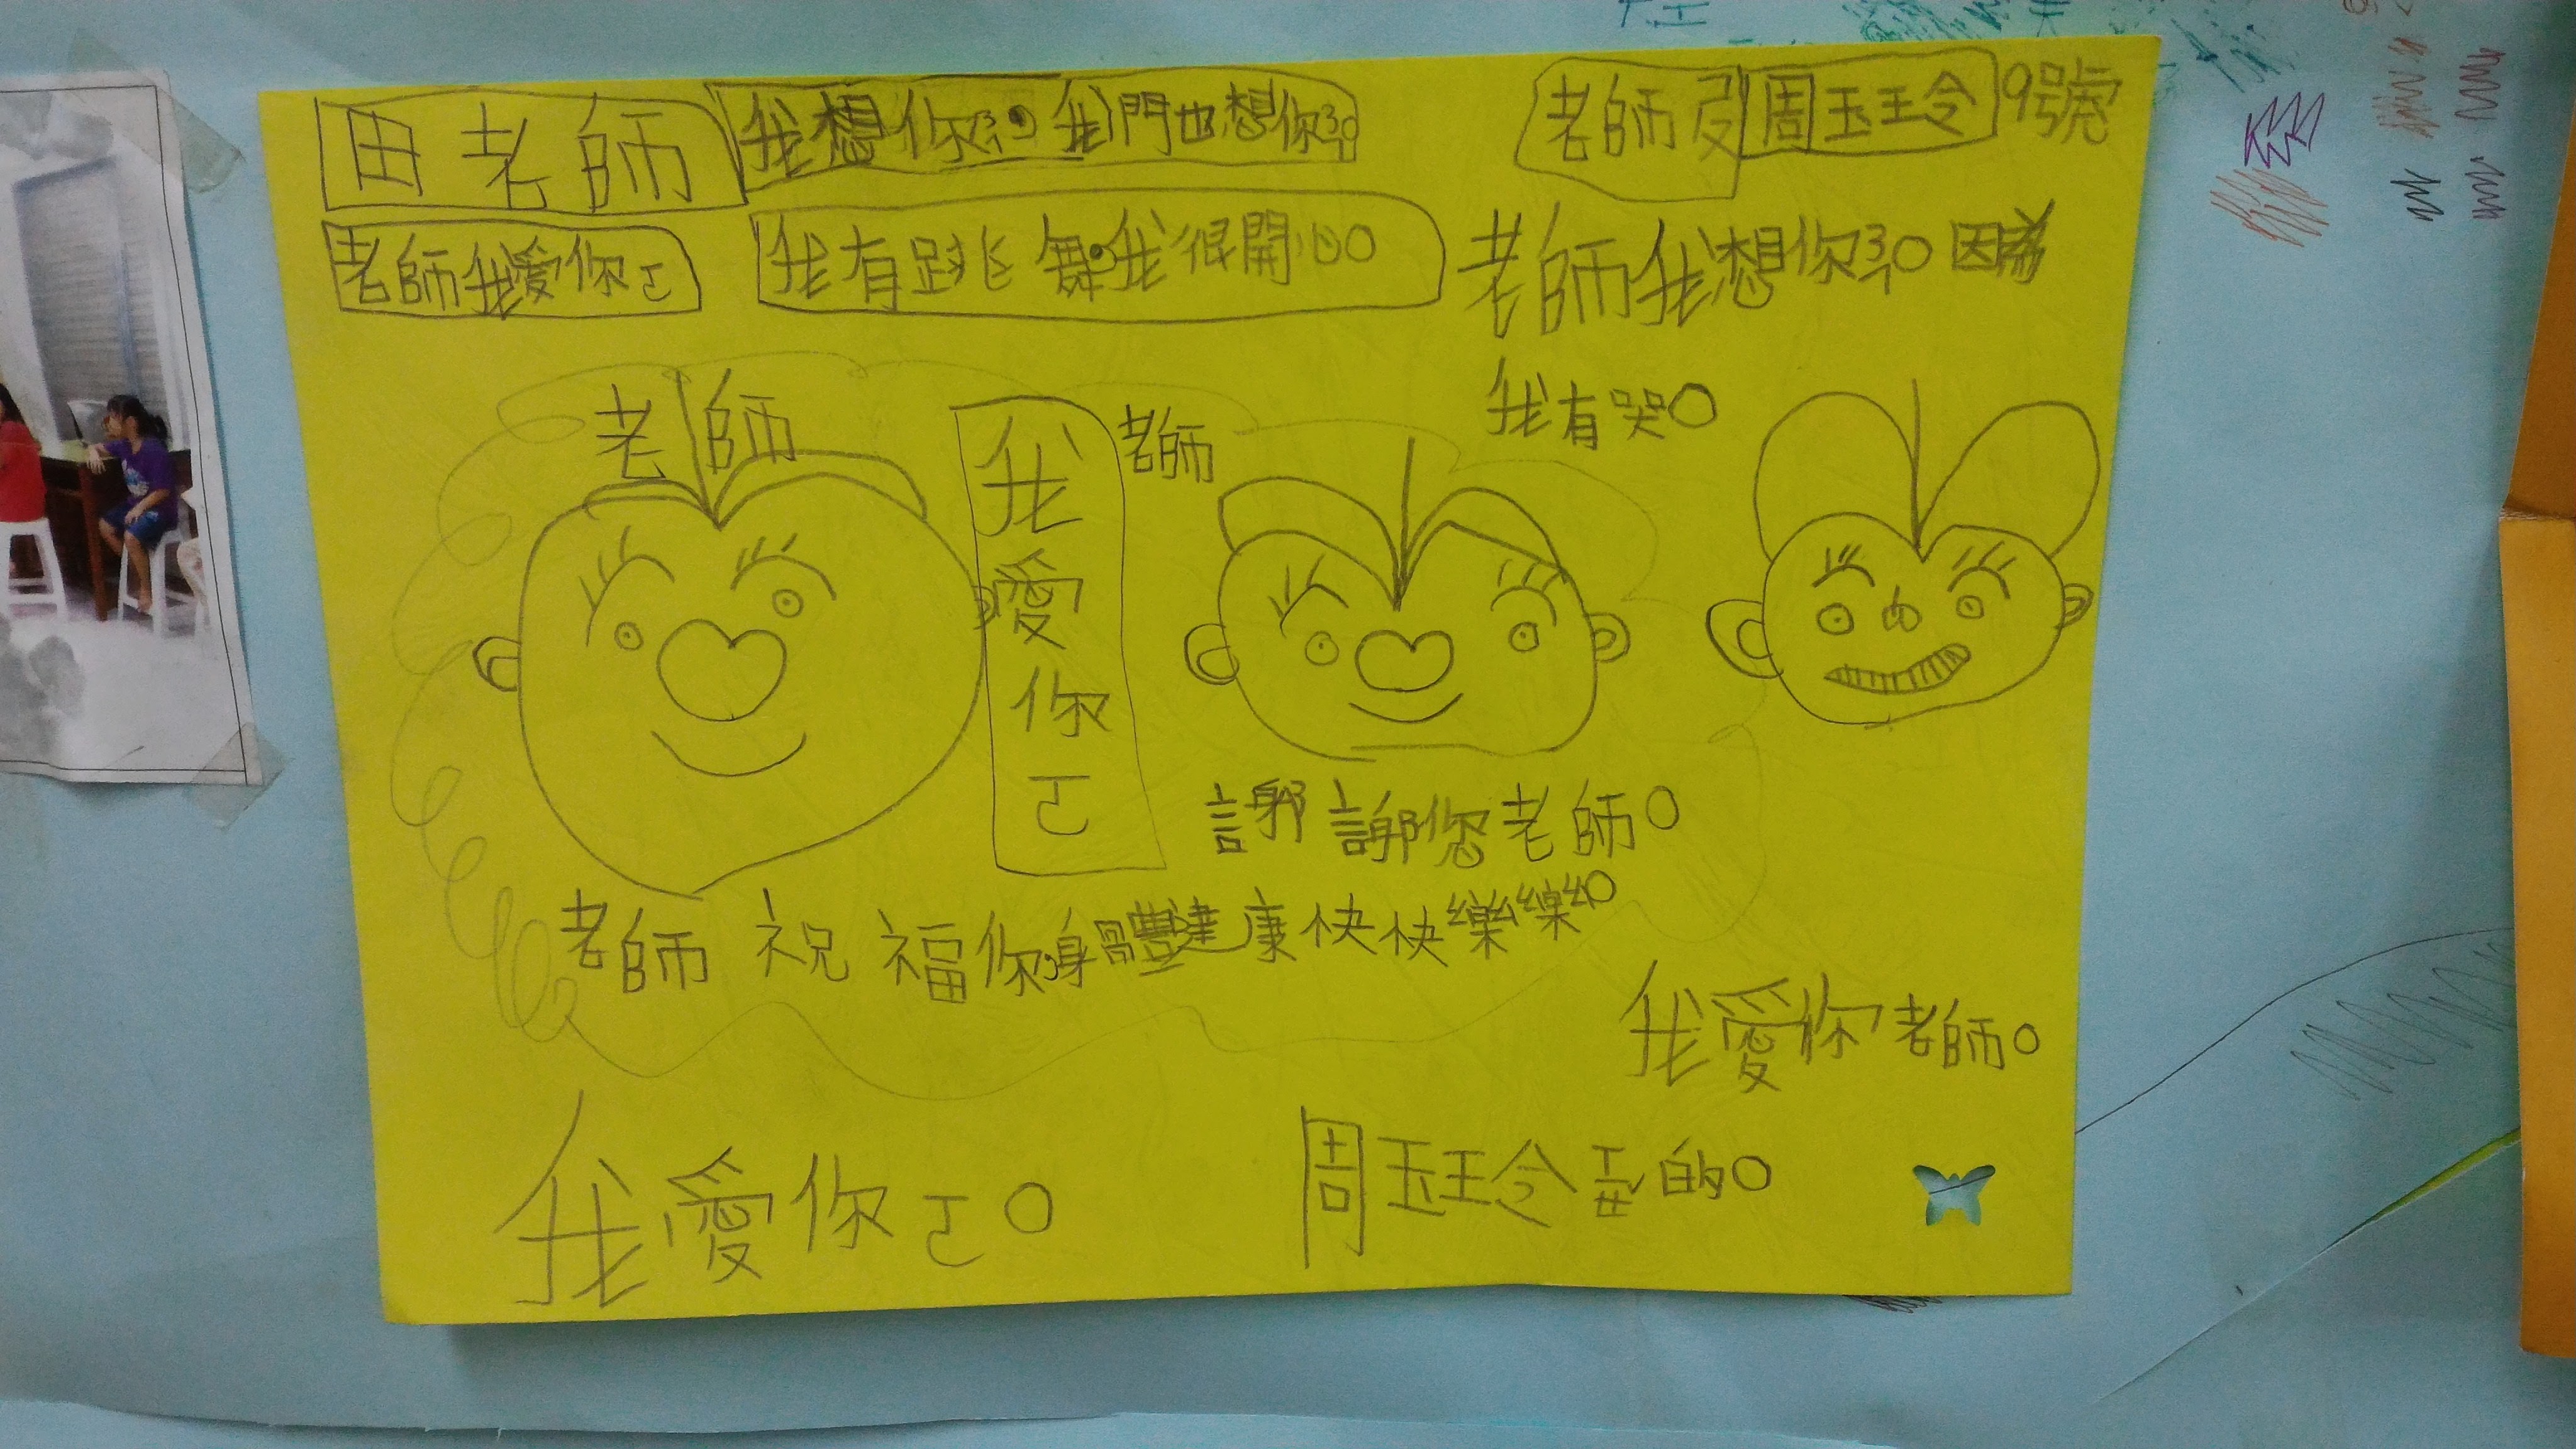 田老師
我想你了，我門也想你了。
老師
周玉玲 9號
老師我愛你
我有跳舞，我很開心。
老師我想你了。因為
我有哭。
老師
我愛你
老師
謝謝您老師。
老師祝福你，身體健康快快樂樂。
我愛你老師。
我愛你
周玉玲 的。